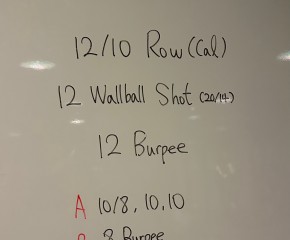 12/10 Row (Cal)
12 Wallball Shot (20/14)
12 Burpee
A 10/8, 10, 10
8 Burpee